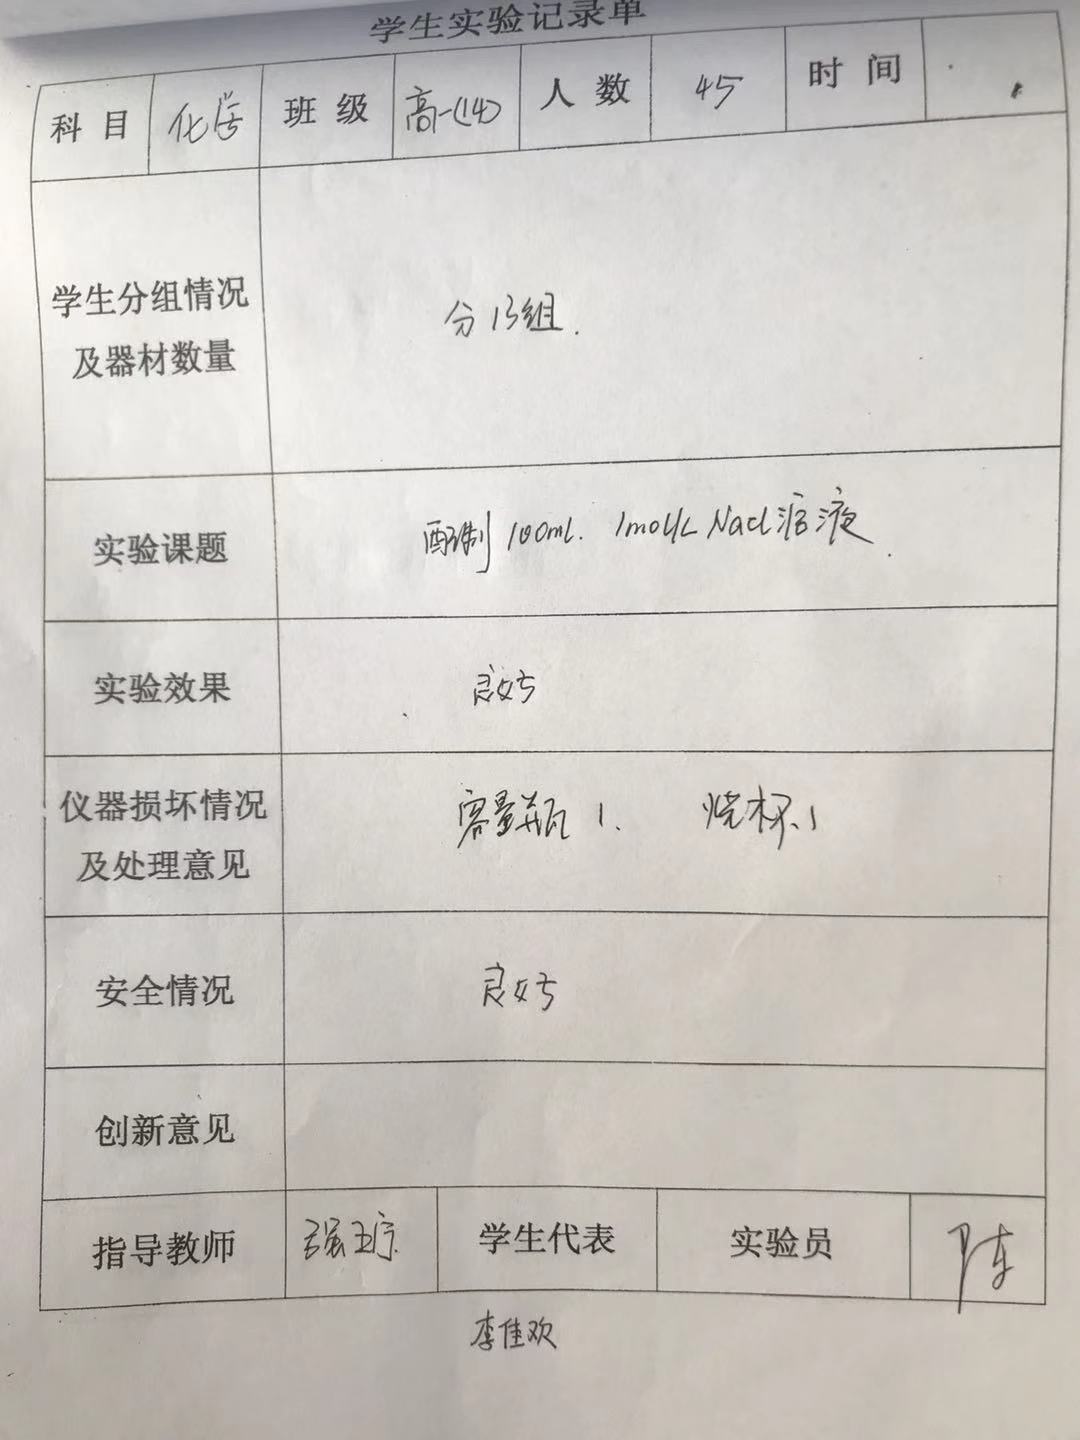 学生实验记录单
科目 化学 班级 高一(14) 人数 45 时间
学生分组情况
及器材数量
分13组.
实验课题 配制100ml. 1mol/L Nacl溶液.
实验效果 良好
仪器损坏情况
及处理意见
容量瓶1. 烧杯.1
安全情况 良好
创新意见
指导教师 学生代表 实验员 陈
李佳欢